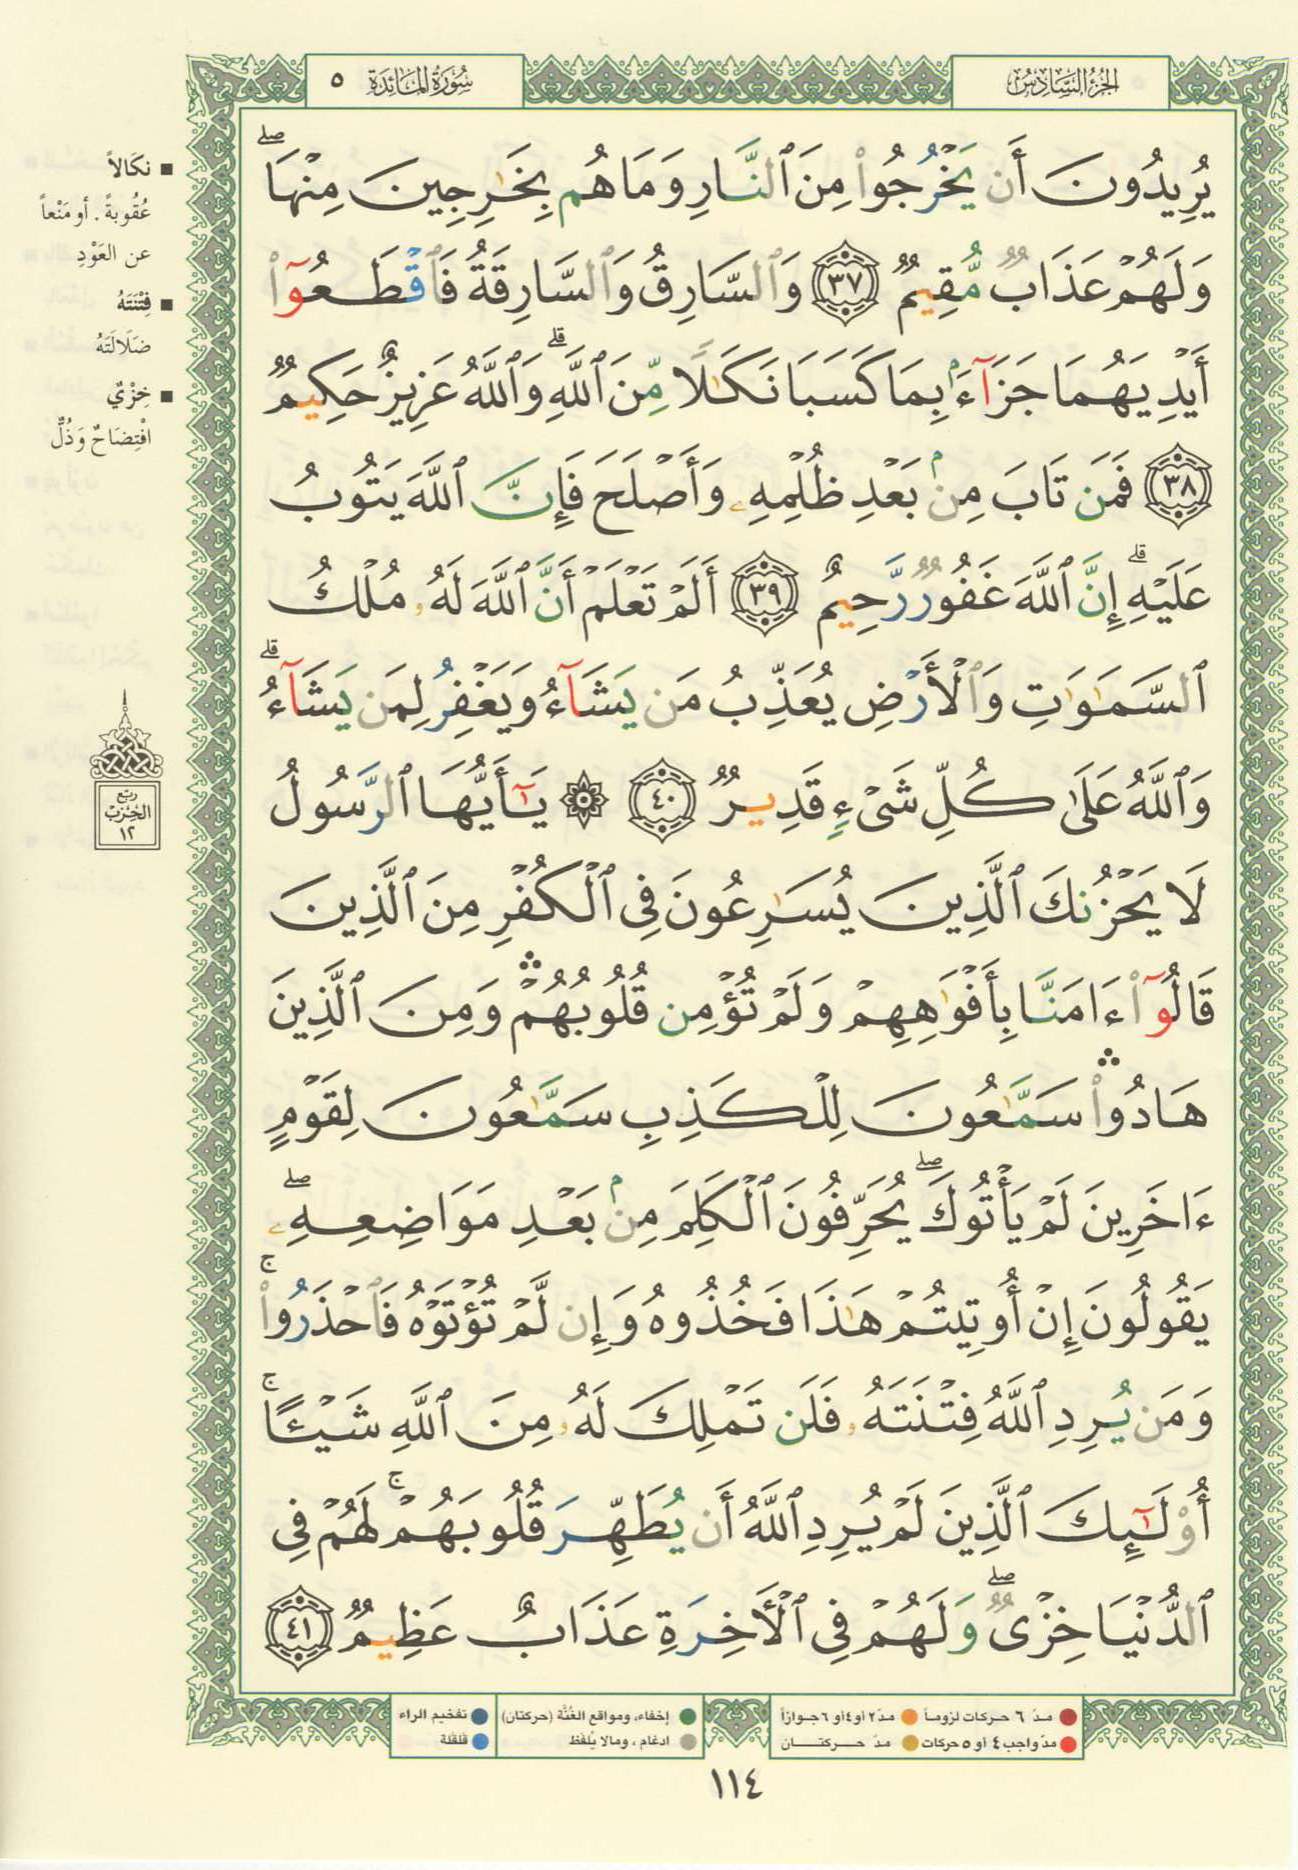 الجزء السادس
سورة المائدة ٥
يُرِيدُونَ أَن يَخْرُجُوا۟ مِنَ ٱلنَّارِ وَمَا هُم بِخَٰرِجِينَ مِنْهَا ۖ
وَلَهُمْ عَذَابٌ مُّقِيمٌ ﴿٣٧﴾ وَٱلسَّارِقُ وَٱلسَّارِقَةُ فَٱقْطَعُوٓا۟
أَيْدِيَهُمَا جَزَآءًۢ بِمَا كَسَبَا نَكَٰلًا مِّنَ ٱللَّهِ ۗ وَٱللَّهُ عَزِيزٌ حَكِيمٌ
﴿٣٨﴾ فَمَن تَابَ مِنۢ بَعْدِ ظُلْمِهِۦ وَأَصْلَحَ فَإِنَّ ٱللَّهَ يَتُوبُ
عَلَيْهِ ۗ إِنَّ ٱللَّهَ غَفُورٌ رَّحِيمٌ ﴿٣٩﴾ أَلَمْ تَعْلَمْ أَنَّ ٱللَّهَ لَهُۥ مُلْكُ
ٱلسَّمَٰوَٰتِ وَٱلْأَرْضِ يُعَذِّبُ مَن يَشَآءُ وَيَغْفِرُ لِمَن يَشَآءُ ۗ
وَٱللَّهُ عَلَىٰ كُلِّ شَىْءٍ قَدِيرٌ ﴿٤٠﴾ ۞ يَٰٓأَيُّهَا ٱلرَّسُولُ
لَا يَحْزُنكَ ٱلَّذِينَ يُسَٰرِعُونَ فِى ٱلْكُفْرِ مِنَ ٱلَّذِينَ
قَالُوٓا۟ ءَامَنَّا بِأَفْوَٰهِهِمْ وَلَمْ تُؤْمِن قُلُوبُهُمْ ۛ وَمِنَ ٱلَّذِينَ
هَادُوا۟ ۛ سَمَّٰعُونَ لِلْكَذِبِ سَمَّٰعُونَ لِقَوْمٍ
ءَاخَرِينَ لَمْ يَأْتُوكَ ۖ يُحَرِّفُونَ ٱلْكَلِمَ مِنۢ بَعْدِ مَوَاضِعِهِۦ ۖ
يَقُولُونَ إِنْ أُوتِيتُمْ هَٰذَا فَخُذُوهُ وَإِن لَّمْ تُؤْتَوْهُ فَٱحْذَرُوا۟ ۚ
وَمَن يُرِدِ ٱللَّهُ فِتْنَتَهُۥ فَلَن تَمْلِكَ لَهُۥ مِنَ ٱللَّهِ شَيْـًٔا ۚ
أُو۟لَٰٓئِكَ ٱلَّذِينَ لَمْ يُرِدِ ٱللَّهُ أَن يُطَهِّرَ قُلُوبَهُمْ ۚ لَهُمْ فِى
ٱلدُّنْيَا خِزْىٌ ۖ وَلَهُمْ فِى ٱلْءَاخِرَةِ عَذَابٌ عَظِيمٌ ﴿٤١﴾
نكَالاً
عُقُوبةً . أو مَنْعاً
عن العَوْدِ
فِتْنَتَهُ
ضَلَالَتَهُ
خِزْيٌ
افْتِضَاحٌ وَذُلٌّ
ربع
الحزب
١٢
مدّ ٦ حركات لزوماً
مدّ ٢ أو ٤ أو ٦ جوازاً
مدّ واجب ٤ أو ٥ حركات
مدّ حركتان
إخفاء، ومواقع الغُنَّة (حركتان)
ادغام ، ومالا يُلفَظ
تفخيم الراء
قلقلة
١١٤